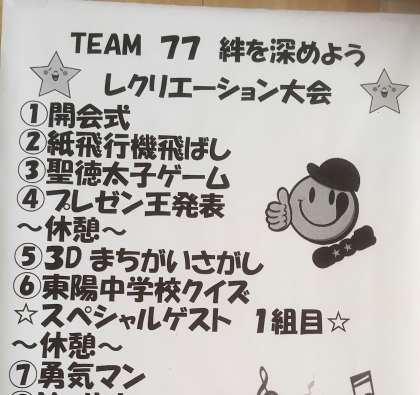 TEAM 77 絆を深めよう
レクリエーション大会
①開会式
②紙飛行機飛ばし
③聖徳太子ゲーム
④プレゼン王発表
～休憩～
⑤3D まちがいさがし
⑥東陽中学校クイズ
☆スペシャルゲスト 1組目☆
～休憩～
⑦勇気マン